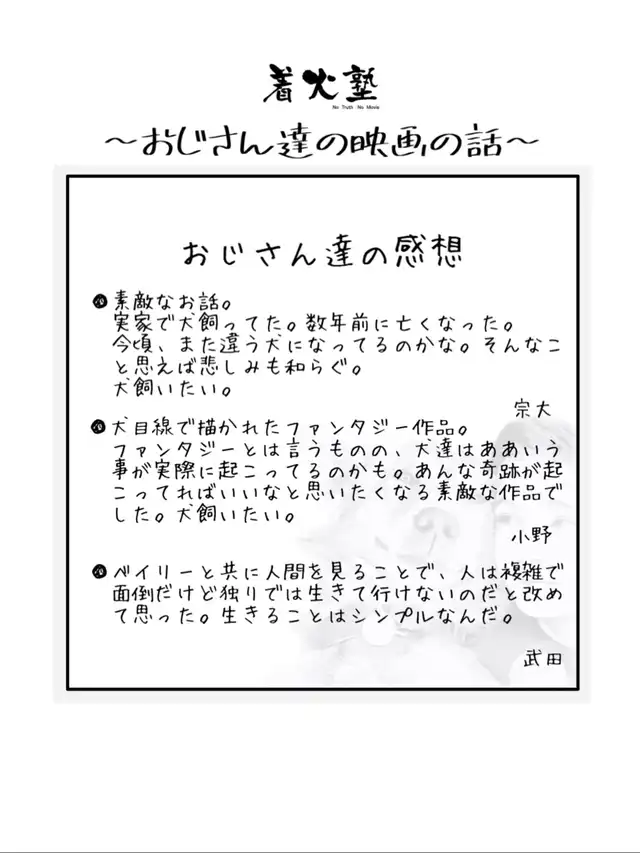 着火塾
No Truth No Movie
〜おじさん達の映画の話〜
おじさん達の感想
素敵なお話。
実家で犬飼ってた。数年前に亡くなった。
今頃、また違う犬になってるのかな。そんなこ
と思えば悲しみも和らぐ。
犬飼いたい。
宗大
犬目線で描かれたファンタジー作品。
ファンタジーとは言うものの、犬達はああいう
事が実際に起こってるのかも。あんな奇跡が起
こってればいいなと思いたくなる素敵な作品で
した。犬飼いたい。
小野
ベイリーと共に人間を見ることで、人は複雑で
面倒だけど独りでは生きて行けないのだと改め
て思った。生きることはシンプルなんだ。
武田